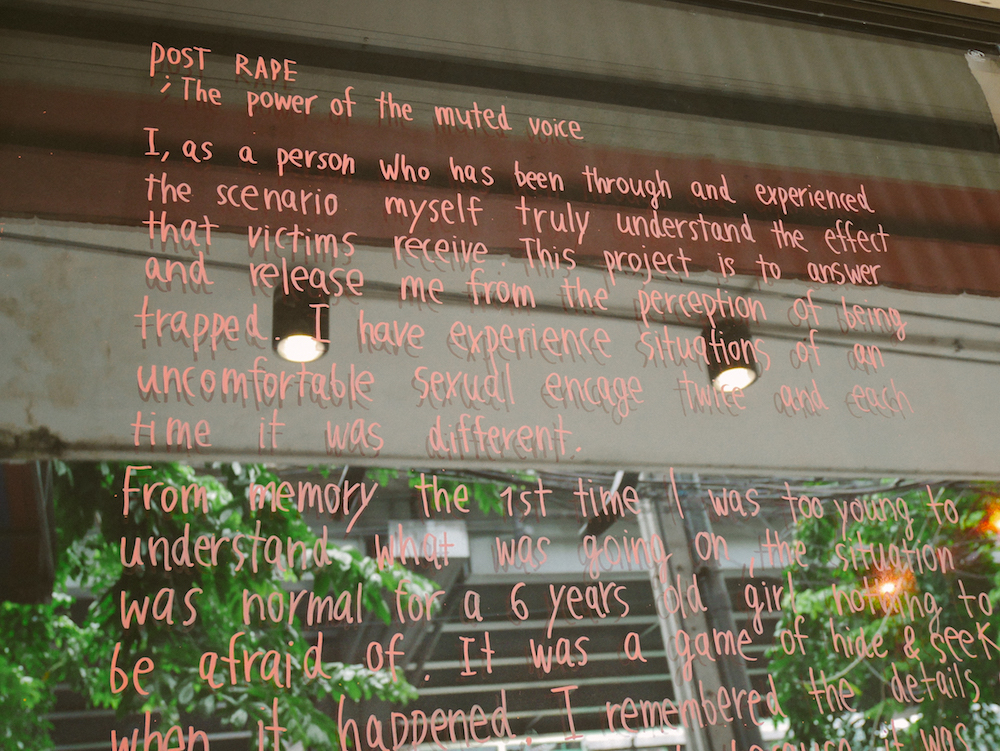 POST RAPE
; The power of the muted voice
I, as a person who has been through and experienced
the scenario myself truly understand the effect
that victims receive. This project is to answer
and release me from the perception of being
trapped. I have experience situations of an
uncomfortable sexual encage twice and each
time it was different.
From memory the 1st time I was too young to
understand what was going on, the situation
was normal for a 6 years old girl nothing to
be afraid of. It was a game of hide & seek
when it happened. I remembered the details
it was